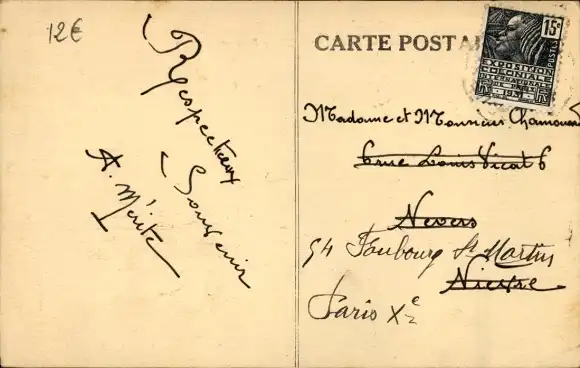 12€
Respectueux
Souvenir
A. Mérite
CARTE POSTA
15c
POSTES
EXPOSITION
COLONIALE
INTERNATIONALE
PARIS
1931
Madame et Monsieur Chamouard
6 rue Louis Vicat 6
Nevers
54 Faubourg St Martin
Nièvre
Paris Xe